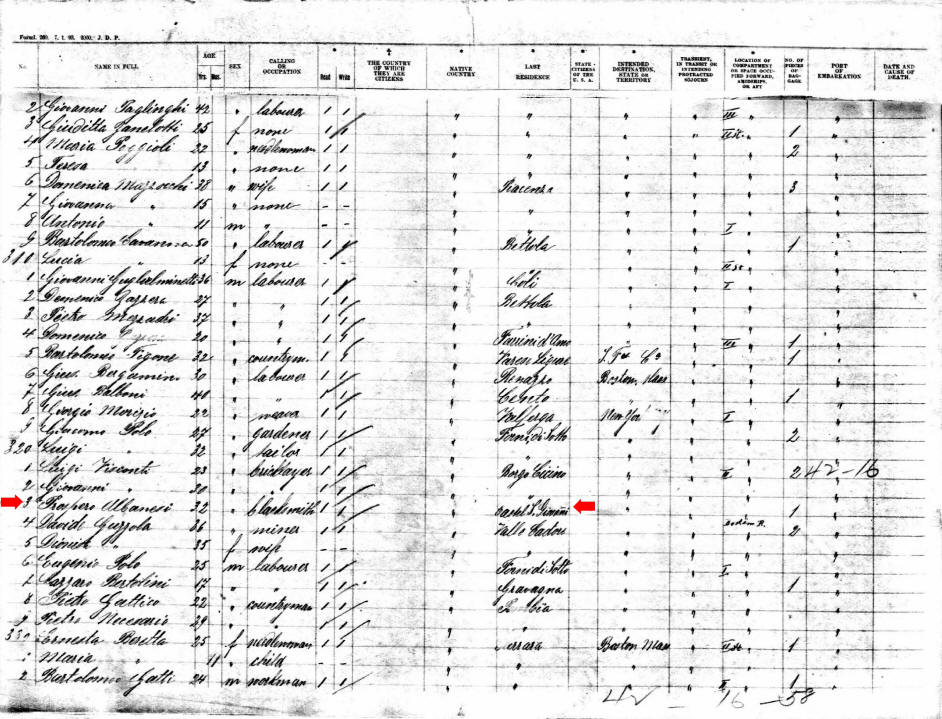 Form 269. 7. 1. 93. 2000. J. D. P.
No. NAME IN FULL. AGE Yrs. Mos. SEX CALLING OR OCCUPATION Read Write THE COUNTRY OF WHICH THEY ARE CITIZENS NATIVE COUNTRY LAST RESIDENCE STATE - CITIZENS OF THE U. S. A. INTENDED DESTINATION, STATE OR TERRITORY TRANSIENT, IN TRANSIT OR INTENDING PROTRACTED SOJOURN LOCATION OF COMPARTMENT OR SPACE OCCUPIED FORWARD, AMIDSHIPS, OR AFT NO. OF PIECES OF BAGGAGE PORT OF EMBARKATION DATE AND CAUSE OF DEATH.
2 Giovanni 42 " labourer 1 1 " " " " III " "
3 Giuditta Zanelotti 25 f none 1 1 " " " " " 1 "
4 Maria Poggioli 22 " needlewoman 1 1 " " " " " 2 "
5 Teresa " 13 " none 1 1 " " " " "
6 Domenica Mazzocchi 38 " wife 1 1 " Piacenza " " " 3 "
7 Giovanna " 15 " none - - " " " " "
8 Antonio " 11 m " - - " " " " I " "
9 Bartolomeo Cavanna 50 " labourer 1 1 " Bettola " " " 1 "
310 Lucia " 13 f none 1 - " " " " "
1 Giovanni Guglielminetti 36 m labourer 1 1 " " " I " "
2 Domenico Gazzera 27 " " 1 1 " Bettola " " "
3 Pietro 37 " " 1 1 " " " " "
4 Domenico 20 " " 1 1 " " " III " 1 "
5 Bartolomeo Figone 32 " countrym. 1 1 " Varese Ligure " " 1 "
6 Gius. Bergamini 30 " labourer 1 1 " Renazzo Boston Mass " " "
7 Gius. Balboni 40 " " 1 1 " Cento " " " 1 "
8 Giorgio Morizio 22 " weaver 1 1 " Valperga New York " I " "
9 Giacomo Polo 27 " gardener 1 1 " Forni di Sotto " " " 2 "
320 Luigi " 32 " tailor 1 1 " " " " "
1 Luigi Visconti 23 " bricklayer 1 1 " Borgo Ticino " " II " 2 42-16
2 Giovanni " 30 " " 1 1 " " " " "
3 Prospero Albanesi 32 " blacksmith 1 1 " Castel S. Giovanni " " " 1 "
4 Davide Guzzola 36 " miner 1 1 " Valle Cadore " " " 2 "
5 " 35 f wife - - " " " " "
6 Eugenio Polo 25 m labourer 1 1 " Forni di Sotto " " I " "
7 Lazzaro Bertolini 17 " " 1 1 " Gravagna " " " 1 "
8 Pietro Gattico 22 " countryman 1 1 " " " " "
9 Pietro Necesario 29 " " 1 1 " " " " "
330 Ernesta Beretta 25 f needlewoman 1 1 " Ferrara Boston Mass " " 1 "
1 Maria " 11 " child - - " " " " "
2 Bartolomeo Gatti 24 m workman 1 1 " " " " II " 1 "
42 - 16 - 58